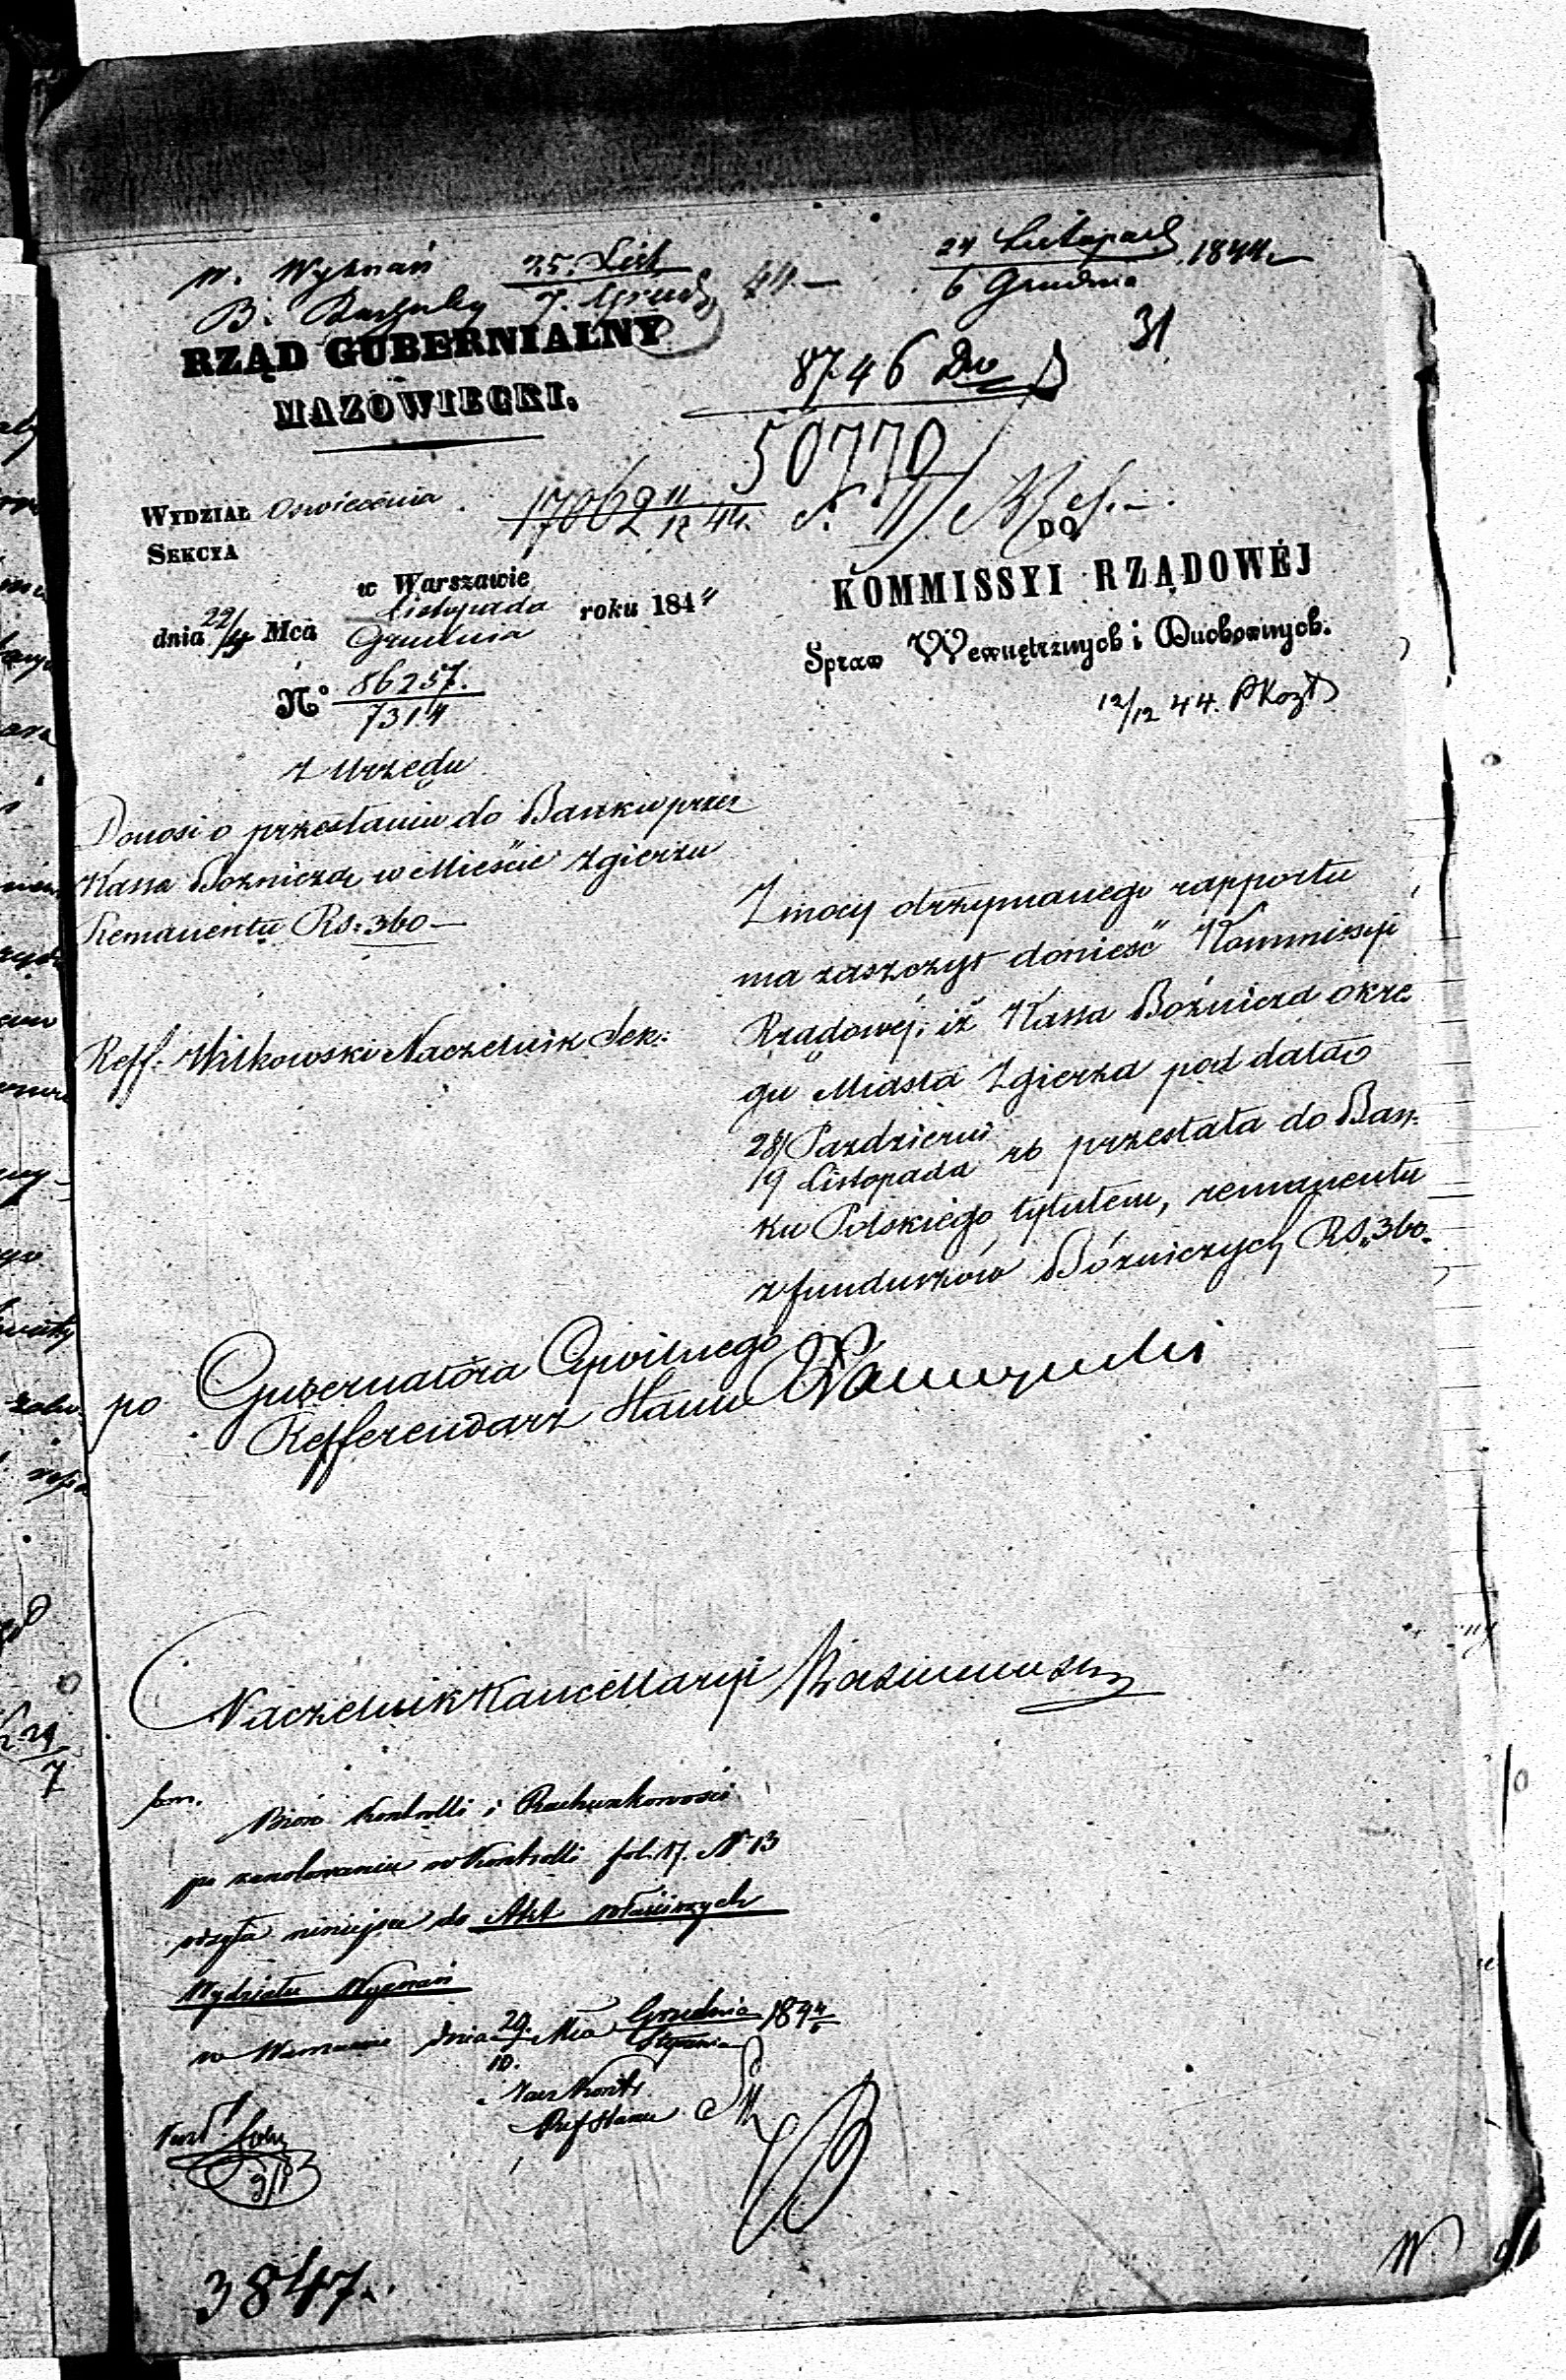 w. Wyznań 25. List. 44.
B. 7. Grud.
24 Listopad 1844
6 Grudnia
31
RZĄD GUBERNIALNY
MAZOWIECKI.
8746
50770
WYDZIAŁ Oswiecenia
17062 11/12 44.
SEKCYA
DO
w Warszawie
KOMMISSYI RZĄDOWÉJ
dnia 22/4 Mca Listopada Grudnia roku 1844
Spraw Wewnętrznych i Duchownych.
N° 86257.
7314
12/12 44.
z Urzędu
Donosi o przesłaniu do Banku przez
Kassa Bożniczą w Mieście Zgierzu
Remanentu Rs: 360 —
Reff. Witkowski Naczelnik Sek:
Z mocy otrzymanego rapportu
ma zaszczyt donieść Kommissyi
Rządowéj, iż Kassa Bożnicza okrę
gu Miasta Zgierza pod datą
28/9 Pazdzierni Listopada rb przesłała do Ban-
ku Polskiego tytułem, remanentu
z funduszów Bóżniczych RS. 360.
po Gubernatora Cywilnego
Refferendarz Stanu
Naczelnik Kancellaryi
Bióro Kontrolli i Rachunkowości
po zanotowaniu w Kontrolli fol. 17. N 13
odsyła niniejsze do Akt właściwych
Wydziału Wyznań
w Warszawie dnia 29./10. Mca Grudnia Stycznia 1844/5
Nacz Kontr
Ref Stanu
3847.